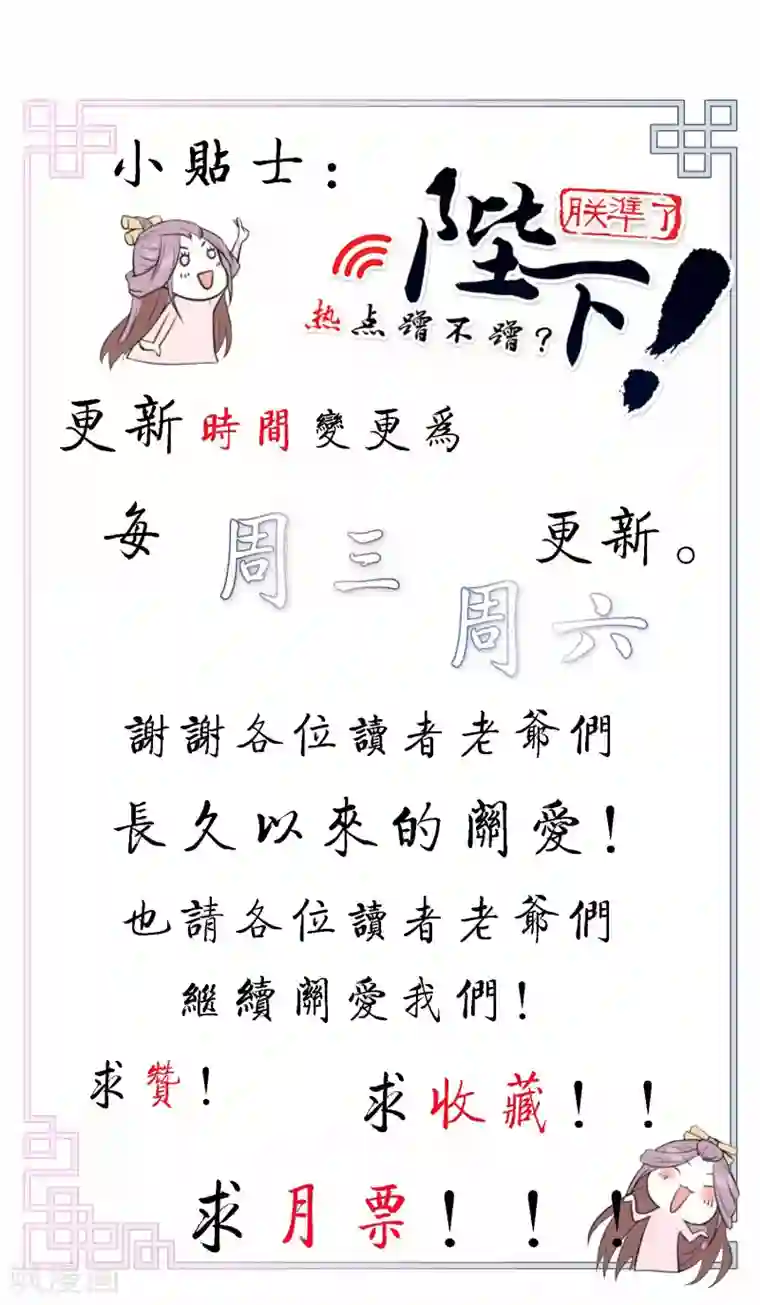 小貼士：
陛下！
朕準了
热点蹭不蹭？
更新時間變更爲
每周三
周六更新。
謝謝各位讀者老爺們
長久以來的關愛！
也請各位讀者老爺們
繼續關愛我們！
求贊！
求收藏！！
求月票！！！